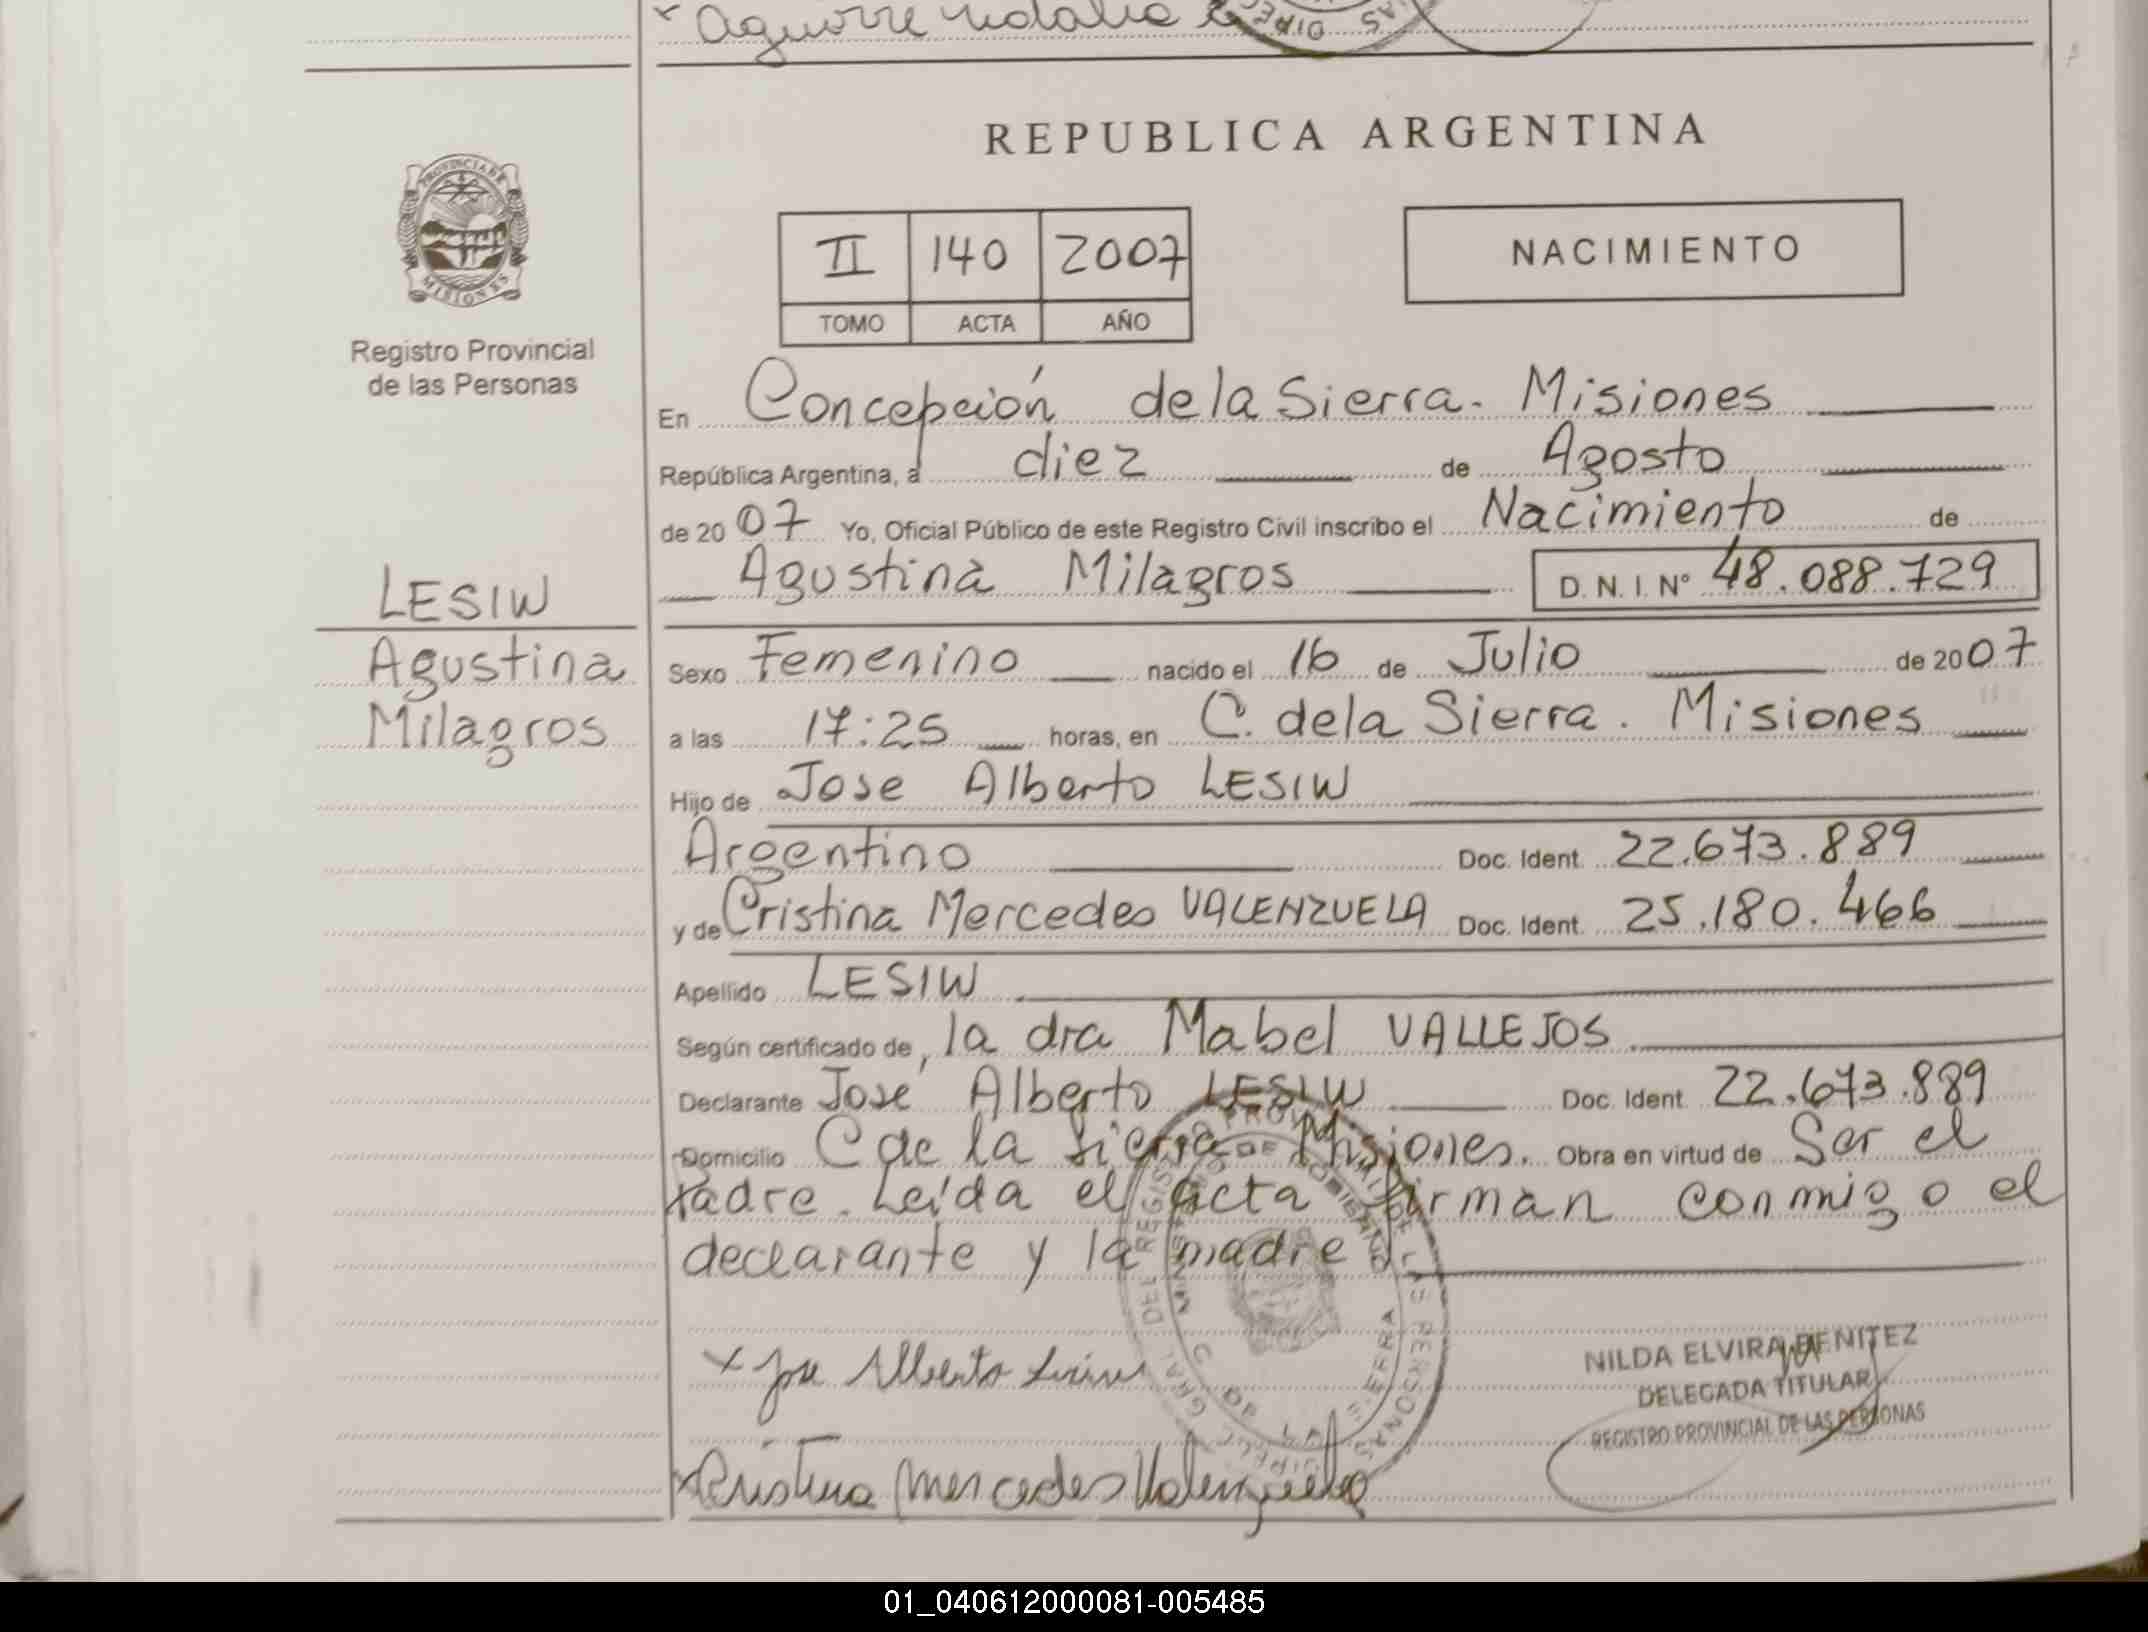 x Aguirre
DIREC
REPUBLICA ARGENTINA
PROVINCIA DE
MISIONES
Registro Provincial
de las Personas
II 140 2007
TOMO ACTA AÑO
NACIMIENTO
En Concepción de la Sierra. Misiones
República Argentina, a diez de Agosto
de 2007 Yo, Oficial Público de este Registro Civil inscribo el Nacimiento de
Agustina Milagros D. N. I. N° 48.088.729
LESIW
Agustina
Milagros
Sexo Femenino nacido el 16 de Julio de 2007
a las 17:25 horas, en C. de la Sierra. Misiones
Hijo de Jose Alberto LESIW
Argentino Doc. Ident. 22.673.889
y de Cristina Mercedes VALENZUELA Doc. Ident. 25.180.466
Apellido LESIW
Según certificado de, la dra Mabel VALLEJOS
Declarante José Alberto LESIW Doc. Ident. 22.673.889
Domicilio C de la Sierra Misiones. Obra en virtud de Ser el
Padre. Leída el acta firman conmigo el
declarante y la madre
x Jose Alberto
x Cristina Mercedes Valenzuela
NILDA ELVIRA BENITEZ
DELEGADA TITULAR
REGISTRO PROVINCIAL DE LAS PERSONAS
01_040612000081-005485